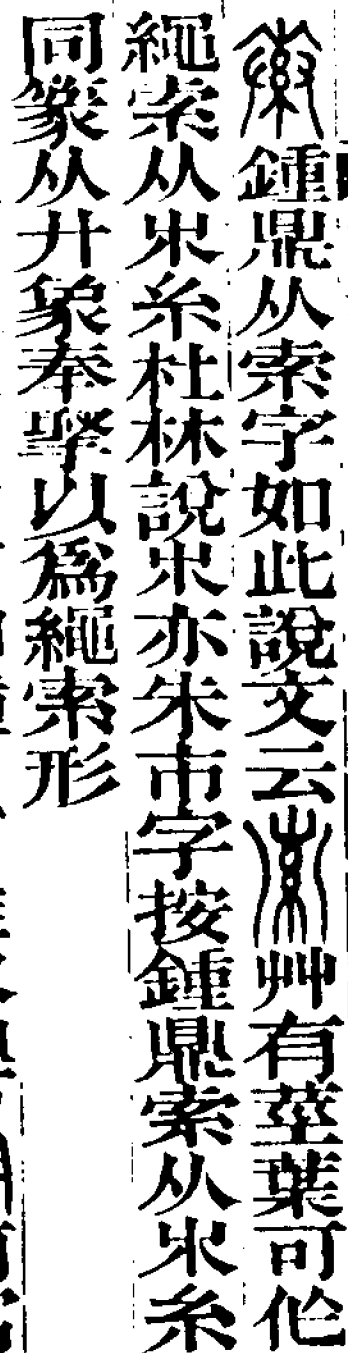 鍾鼎从索字如此說文云𡩡艸有莖葉可作
繩索从𣎵糸杜林說𣎵亦朱巿字按鍾鼎索从𣎵糸
同篆从廾象奉𢪇以爲繩索形